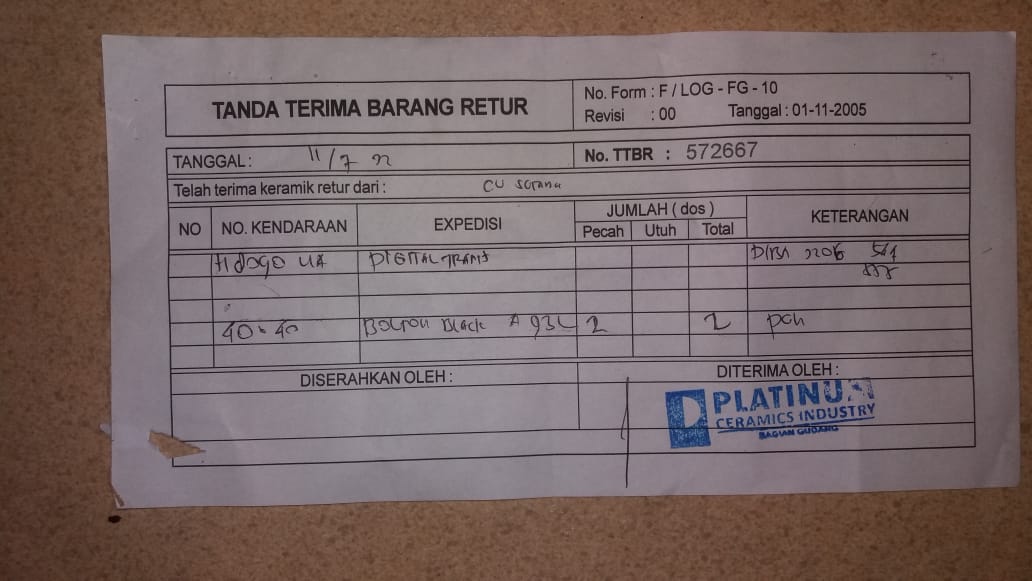 TANDA TERIMA BARANG RETUR
No. Form : F / LOG - FG - 10
Revisi : 00 Tanggal : 01-11-2005
TANGGAL : 11/7 22
No. TTBR : 572667
Telah terima keramik retur dari : CV
NO NO. KENDARAAN EXPEDISI JUMLAH ( dos ) KETERANGAN
Pecah Utuh Total
DIGITAL TRANS
40 x 40 Black A 93L 2 2 pch
DISERAHKAN OLEH : DITERIMA OLEH :
PLATINUM
CERAMICS INDUSTRY
BAGIAN GUDANG